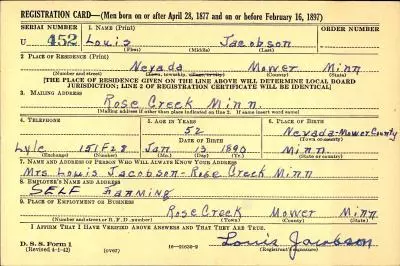 REGISTRATION CARD—(Men born on or after April 28, 1877 and on or before February 16, 1897)
SERIAL NUMBER 1. NAME (Print) ORDER NUMBER
U 452 Louis Jacobson
(First) (Middle) (Last)
2. PLACE OF RESIDENCE (Print)
Nevada Mower Minn
(Number and street) (Town, township, village, or city) (County) (State)
[THE PLACE OF RESIDENCE GIVEN ON THE LINE ABOVE WILL DETERMINE LOCAL BOARD
JURISDICTION; LINE 2 OF REGISTRATION CERTIFICATE WILL BE IDENTICAL]
3. MAILING ADDRESS
Rose Creek Minn.
[Mailing address if other than place indicated on line 2. If same insert word same]
4. TELEPHONE 5. AGE IN YEARS 6. PLACE OF BIRTH
52 Nevada-Mower County
DATE OF BIRTH (Town or county)
Lyle 151F28 Jan 13 1890 Minn
(Exchange) (Number) (Mo.) (Day) (Yr.) (State or country)
7. NAME AND ADDRESS OF PERSON WHO WILL ALWAYS KNOW YOUR ADDRESS
Mrs Louis Jacobson-Rose Creek Minn
8. EMPLOYER'S NAME AND ADDRESS
SELF Farming
9. PLACE OF EMPLOYMENT OR BUSINESS
Rose Creek Mower Minn
(Number and street or R. F. D. number) (Town) (County) (State)
I AFFIRM THAT I HAVE VERIFIED ABOVE ANSWERS AND THAT THEY ARE TRUE.
D. S. S. Form 1 Louis Jacobson
(Revised 4-1-42) (over) 16-21630-2 (Registrant's signature)